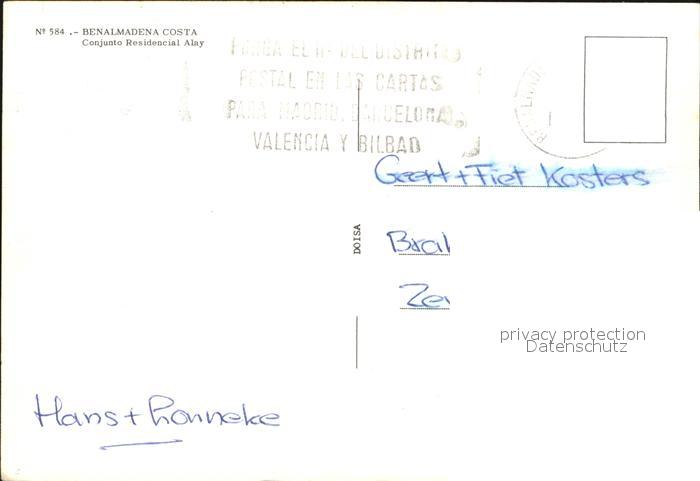 Nº 584 .- BENALMADENA COSTA
Conjunto Residencial Alay
PONGA EL Nº DEL DISTRITO
POSTAL EN LAS CARTAS
PARA MADRID, BARCELONA,
VALENCIA Y BILBAO
Geert + Fiet Kosters
DOISA
Bral
Zei
privacy protection
Datenschutz
Hans + Lonneke